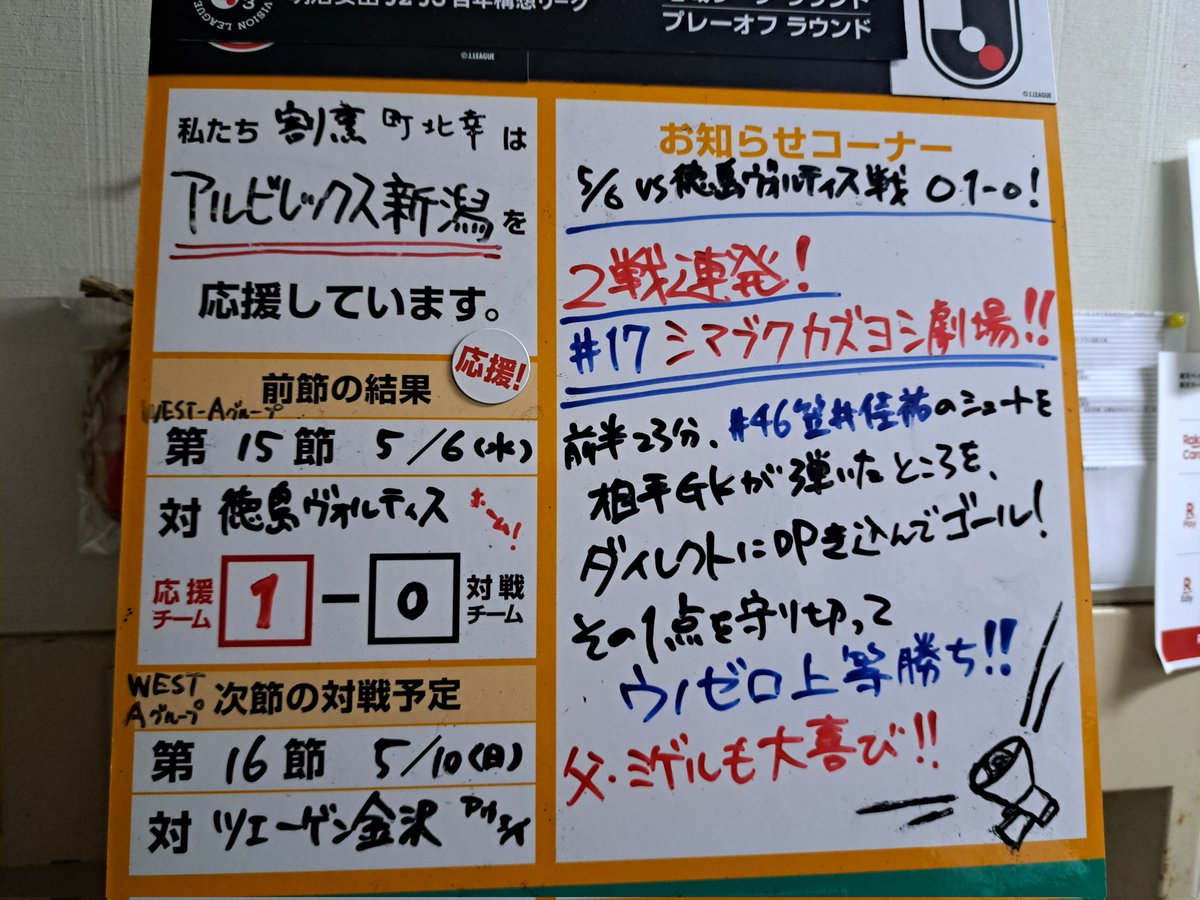 VISION LEAGUE
明治安田J2J3百年構想リーグ
プレーオフ ラウンド
©J.LEAGUE
©J.LEAGUE
私たち 割烹 町北幸 は
アルビレックス新潟を
応援しています。
応援!
前節の結果
WEST-Aグループ
第 15 節 5/6(水)
対 徳島ヴォルティス ホーム!
応援チーム 1 - 0 対戦チーム
WEST Aグループ 次節の対戦予定
第 16 節 5/10(日)
対 ツエーゲン金沢 アウェイ
お知らせコーナー
5/6 vs徳島ヴォルティス戦 ○1-0!
2戦連発!
#17 シマブクカズヨシ劇場!!
前半23分、#46笠井佳祐のシュートを
相手GKが弾いたところを、
ダイレクトに叩き込んでゴール!
その1点を守り切って
ウノゼロ上等勝ち!!
父・ミゲルも大喜び!!